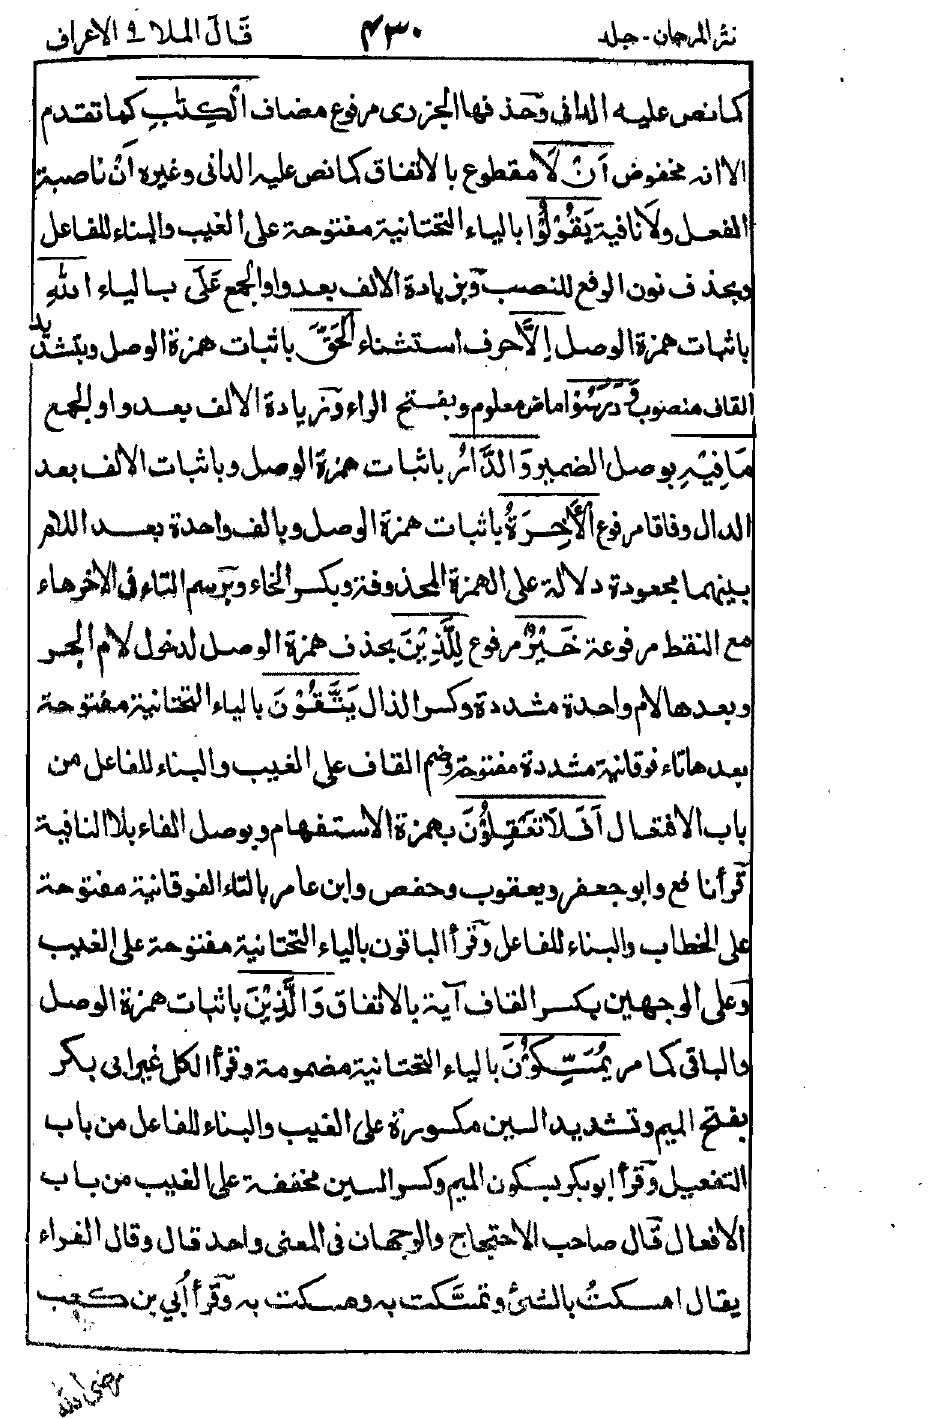 نثر المرجان - جلد ٤٣٠ قال الملا في الاعراف
كما نص عليه الدانى وحذفها الجزرى مرفوع مضاف الْكِتٰبِ كما تقدم
الا انه مخفوض اَنْ لَّا مقطوع بالاتفاق كما نص عليه الدانى وغيره اَنْ ناصبة
الفعل ولَا نافية يَقُوْلُوْا بالياء التحتانية مفتوحة على الغيب والبناء للفاعل
وبحذف نون الرفع للنصب وبزيادة الالف بعد واو الجمع عَلَى بالياء اللّٰهِ
باثبات همزة الوصل اِلَّا حرف استثناء الْحَقَّ باثبات همزة الوصل وبتشديد
القاف منصوب وَدَرَسُوْا ماض معلوم وبفتح الراء وزيادة الالف بعد واو الجمع
مَا فِيْهِ بوصل الضمير وَالدَّارُ باثبات همزة الوصل وباثبات الالف بعد
الدال وفاقا مرفوع الْاٰخِرَةُ باثبات همزة الوصل وبالف واحدة بعد اللام
بينهما مجعودة دلالة على الهمزة المحذوفة وبكسر الخاء وبرسم التاء فى الاخر هاء
مع النقط مرفوعة خَيْرٌ مرفوع لِلَّذِيْنَ بحذف همزة الوصل لدخول لام الجر
وبعدها لام واحدة مشددة وكسر الذال يَتَّقُوْنَ بالياء التحتانية مفتوحة
بعدها تاء فوقانية مشددة مفتوحة وضم القاف على الغيب والبناء للفاعل من
باب الافتعال اَفَلَا تَعْقِلُوْنَ بهمزة الاستفهام وبوصل الفاء بلا النافية
قرأ نافع وابو جعفر ويعقوب وحفص وابن عامر بالتاء الفوقانية مفتوحة
على الخطاب والبناء للفاعل وقرأ الباقون بالياء التحتانية مفتوحة على الغيب
وعلى الوجهين بكسر القاف آية بالاتفاق وَالَّذِيْنَ باثبات همزة الوصل
والباقى كما مر يُمَسِّكُوْنَ بالياء التحتانية مضمومة وقرأ الكل غير ابى بكر
بفتح الميم وتشديد السين مكسورة على الغيب والبناء للفاعل من باب
التفعيل وقرأ ابو بكر بسكون الميم وكسر السين مخففة على الغيب من باب
الافعال قال صاحب الاحتجاج والوجهان فى المعنى واحد قال وقال الفراء
يقال امسكتُ بالشئ وتمسَّكت به ومسكت به وقرأ اُبي بن كعب
رضى الله